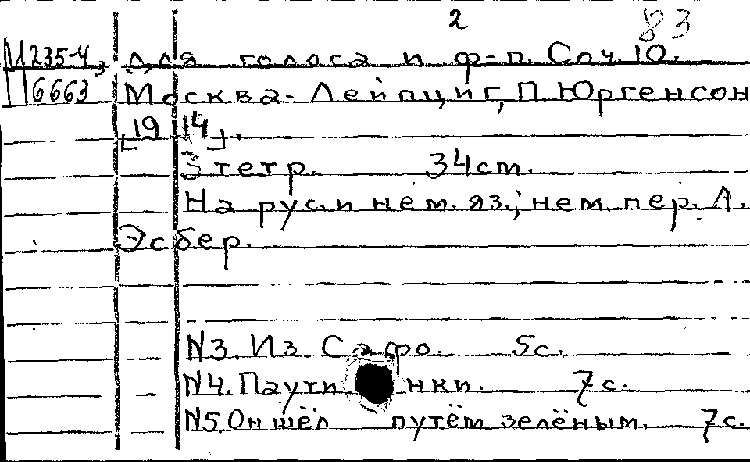 2 83
11235-4, для голоса и ф-п. Соч. 10.
116663 Москва-Лейпциг, П. Юргенсон
[1914].
3 тетр. 34 cm.
На рус. и нем. яз.; нем. пер. А.
Эсбер.
N3. Из Сафо. 5с.
N4. Паутинки. 7с.
N5. Он шёл путём зелёным. 7с.